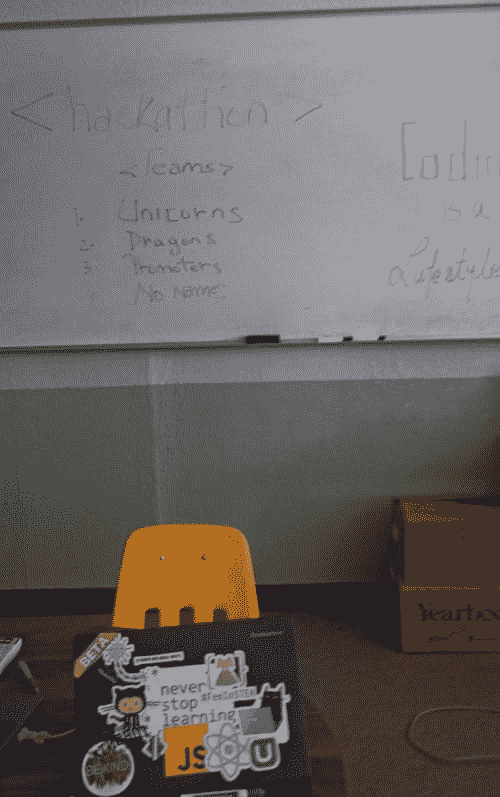 <hackathon />
<Teams>
1. Unicorns
2. Dragons
3. Promoters
No name
Coding
is a
Lifestyle
Yearboo
BETA
never
stop
learning
#FemInSTEM
JS
U